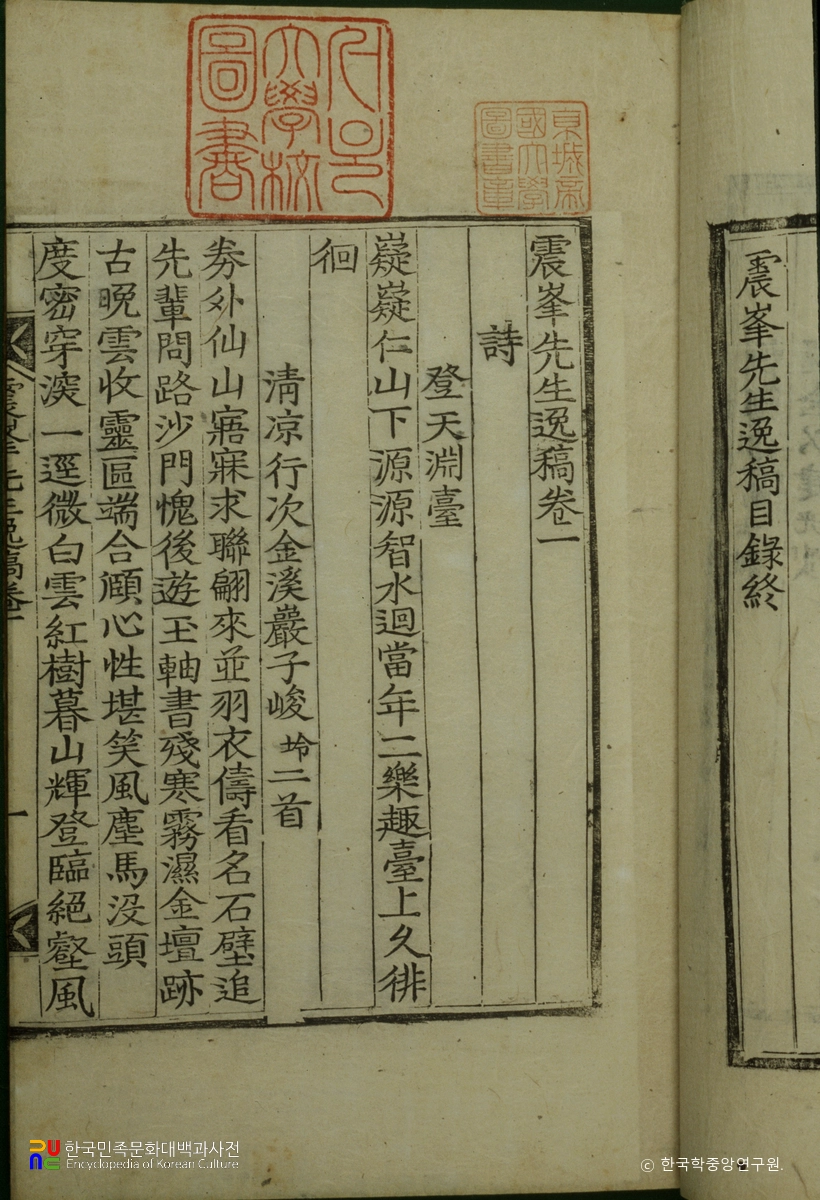 震峯先生逸稿目錄終
震峯先生逸稿卷一
詩
登天淵臺
嶷嶷仁山下源源智水迴當年二樂趣臺上久徘
徊
淸凉行次金溪巖子峻坽二首
券外仙山寤寐求聯翩來並羽衣儔看名石壁追
先輩問路沙門愧後遊玉軸書殘寒霧濕金壇跡
古晩雲收靈區端合頤心性堪笑風塵馬沒頭
度密穿深一逕微白雲紅樹暮山輝登臨絕壑風
震峯先生逸稿卷一
一
京城帝
國大學
圖書章
서울
大學校
圖書
한국민족문화대백과사전
Encyclopedia of Korean Culture
© 한국학중앙연구원.